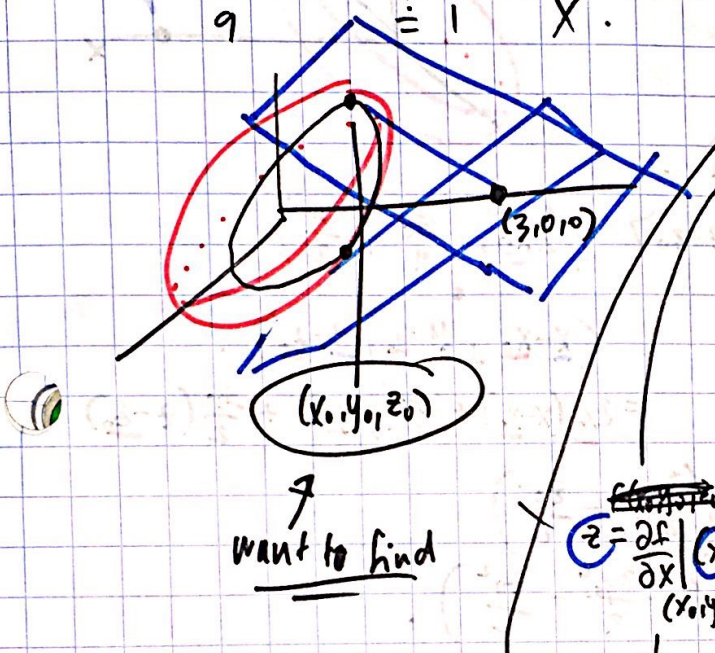 9 ≐ 1 X .
(3,0,0)
(x₀,y₀,z₀)
want to find
z = ∂f/∂x | (x
(x₀,y